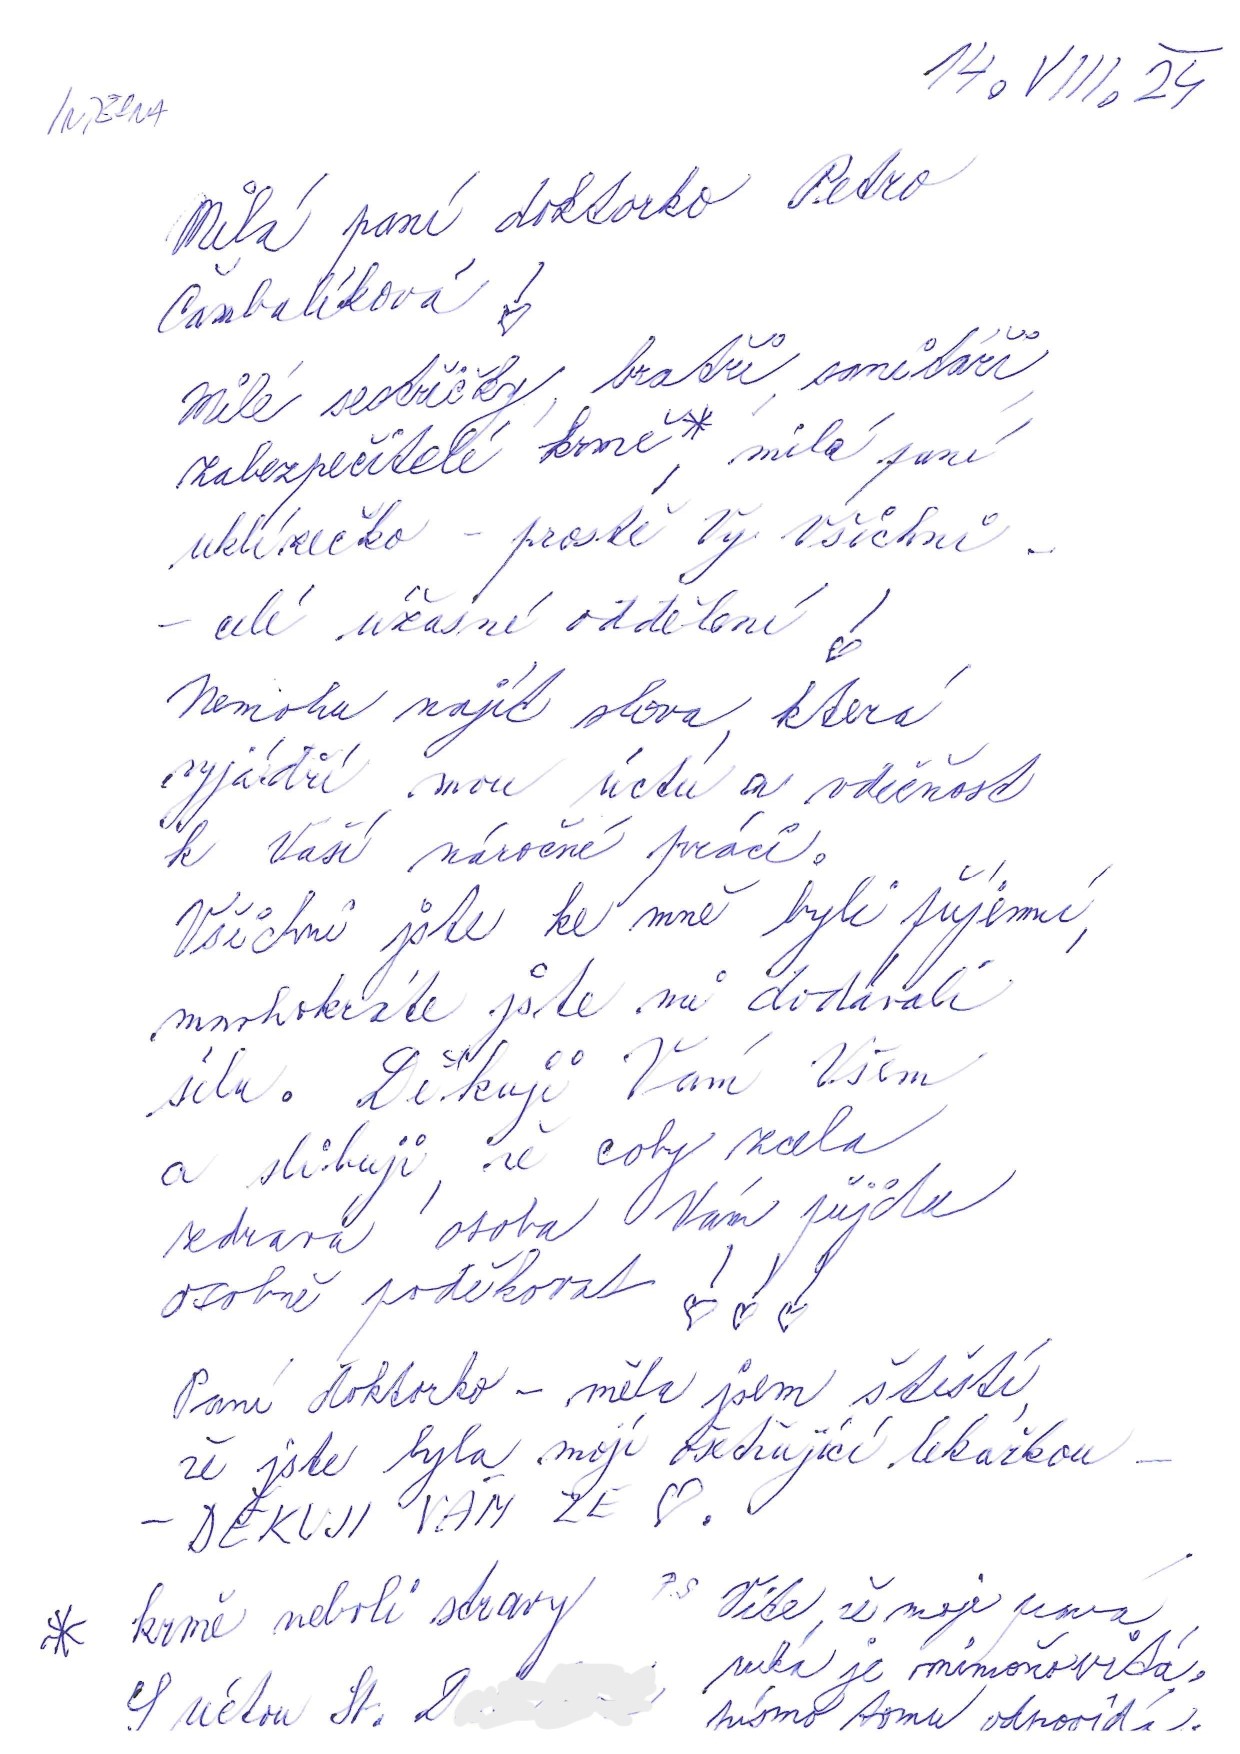 INTERNA
14. VIII. 24
Milá paní doktorko Petro
Čambalíková !
Milé sestřičky, bratři, sanitáři,
zabezpečitelé krmě*, milá paní
uklízečko - prostě Vy všichni -
- celé úžasné oddělení !
Nemohu najít slova, která
vyjádří mou úctu a vděčnost
k Vaší náročné práci.
Všichni jste ke mně byli příjemní,
mnohokráte jste mi dodávali
sílu. Děkuji Vám Všem
a slibuji, že coby zcela
zdravá osoba Vám přijdu
osobně poděkovat ! ! !
Paní doktorko - měla jsem štěstí,
že jste byla mojí ošetřující lékařkou -
- DĚKUJI VÁM ZE ♡.
* krmě neboli stravy
S úctou St. D
P.S Víte, že moje pravá
ruka je mimoňovitá.
Písmo tomu odpovídá.